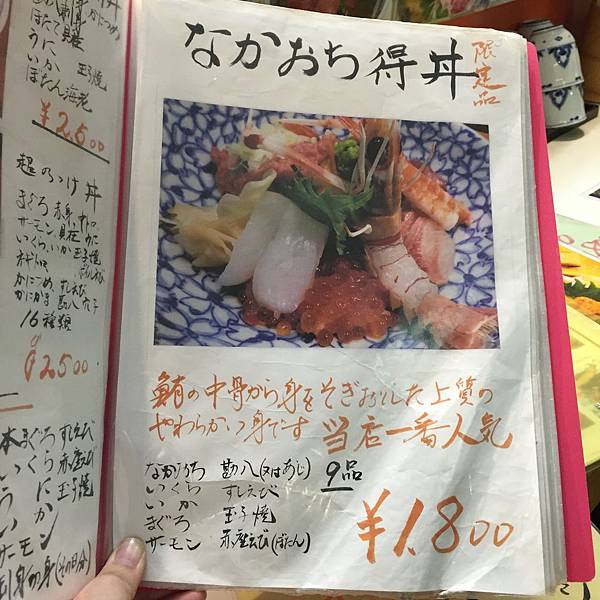 ほたて 貝柱
うに
いか 玉子焼
ぼたん海老
¥2500
超のっけ丼
まぐろ 赤身
サーモン 貝柱 うに
いくら、いか 玉子焼
かにつめ すしえび
かにかま 勘八 穴子
16種類
¥2500
本まぐろ すしえび
いくら 赤座えび
うに 玉子焼
いか
サーモン
なかおち得丼
限定品
鮪の中骨から身をそぎおとした上質の
やわらかい身です 当店一番人気
なかおち 勘八(又はあじ) 9品
いくら すしえび
いか 玉子焼
まぐろ 赤座えび(ぼたん)
サーモン
¥1.800